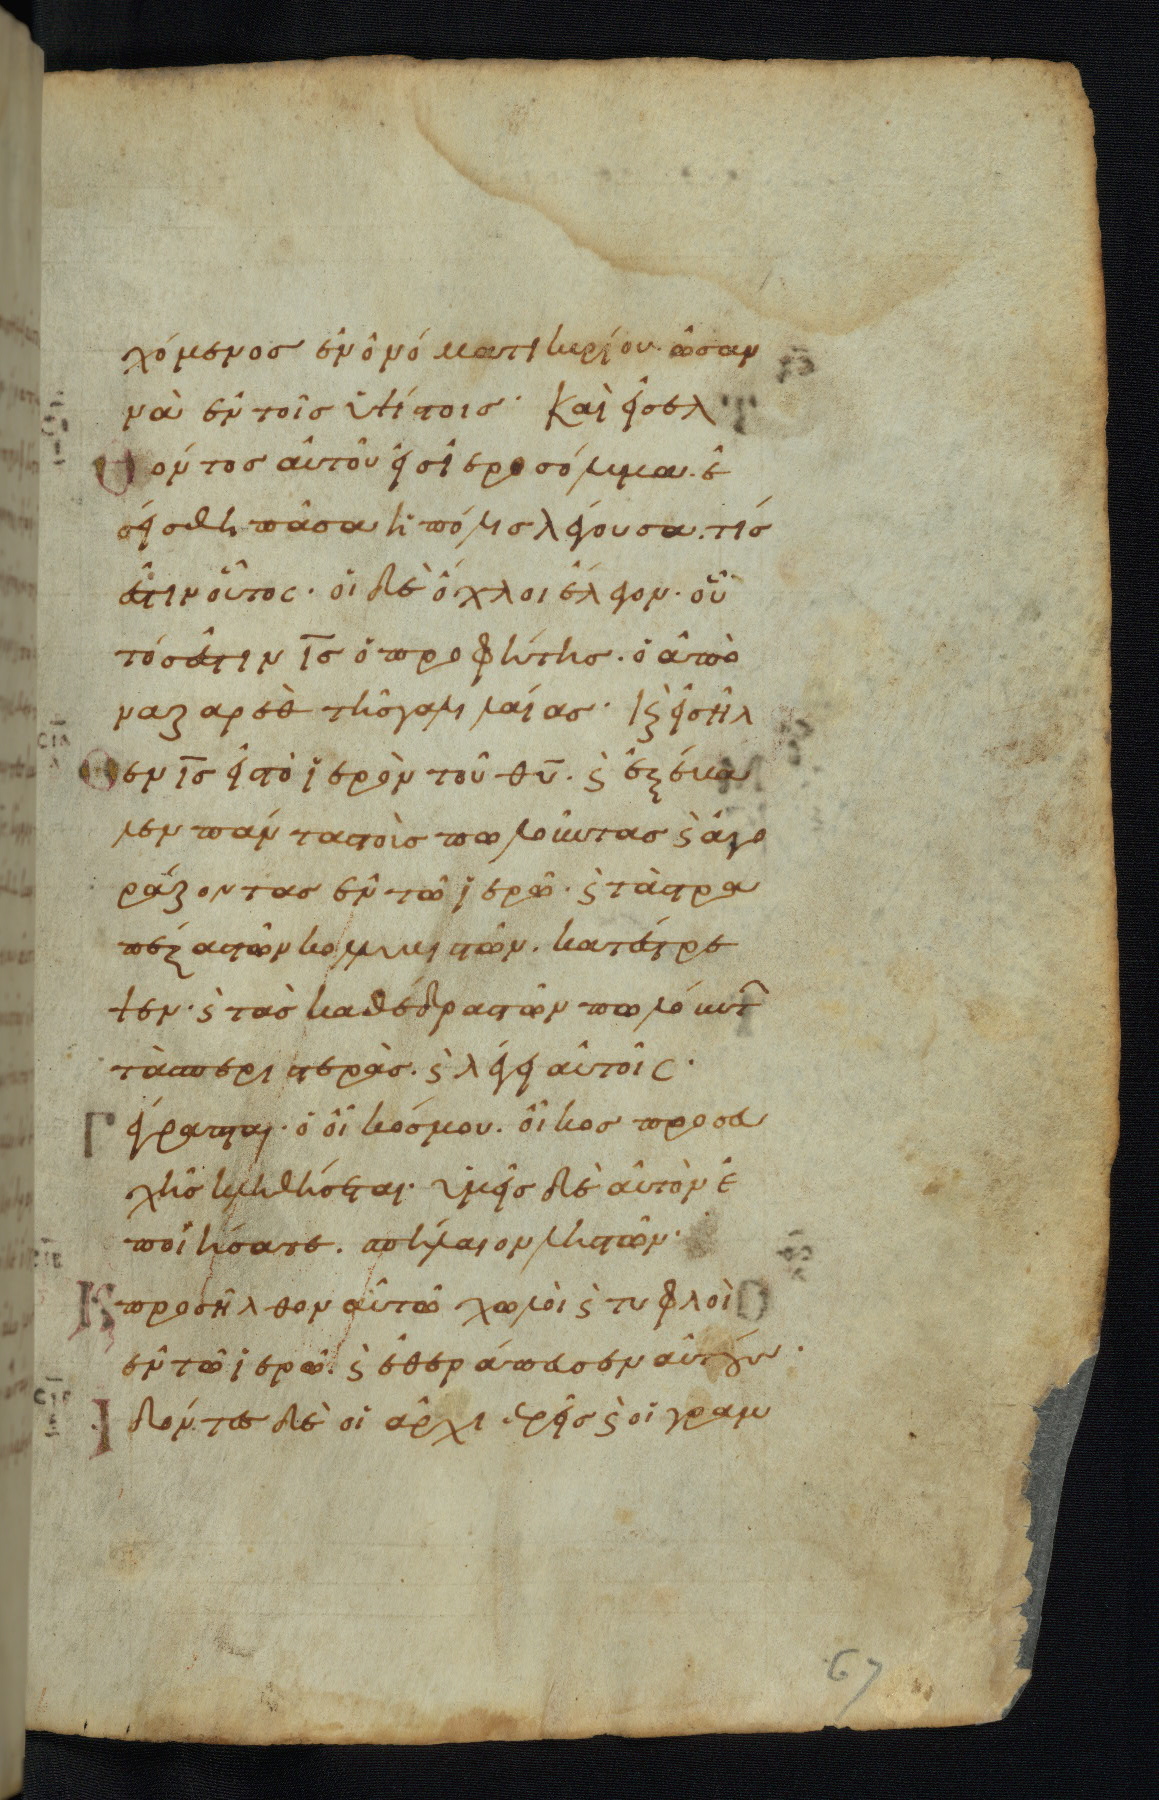 χόμενος ἐν ὀνόματι κυρίου. ὡσαν
νὰ ἐν τοῖς ὑψίστοις. Καὶ εἰσελ
θόντος αὐτοῦ εἰς ἱεροσόλυμα. ἐ
σείσθη πᾶσα ἡ πόλις λέγουσα. τίς
ἐστιν οὗτος. οἱ δὲ ὄχλοι ἔλεγον. οὗ
τός ἐστιν ις ὁ προφήτης. ὁ ἀπὸ
ναζαρὲθ τῆς γαλιλαίας. Κϛ εἰσῆλ
θεν ις εἰς τὸ ἱερὸν τοῦ θυ. ϛ ἐξέβα
λεν πάντας τοὺς πωλοῦντας ϛ ἀγο
ράζοντας ἐν τῷ ἱερῷ. ϛ τὰς τρα
πέζας τῶν κολλυβιστῶν. κατέστρε
ψεν. ϛ τὰς καθέδρας τῶν πωλούντ
τὰς περιστεράς. ϛ λέγει αὐτοῖς.
Γέγραπται. ὁ οἶκός μου. οἶκος προσευ
χῆς κληθήσεται. ὑμεῖς δὲ αὐτὸν ἐ
ποιήσατε. σπήλαιον ληστῶν.
Κ προσῆλθον αὐτῷ χωλοὶ ϛ τυφλοὶ
ἐν τῷ ἱερῷ. ϛ ἐθεράπευσεν αὐτούς.
Ἰδόντες δὲ οἱ ἀρχιερεῖς ϛ οἱ γραμ
67